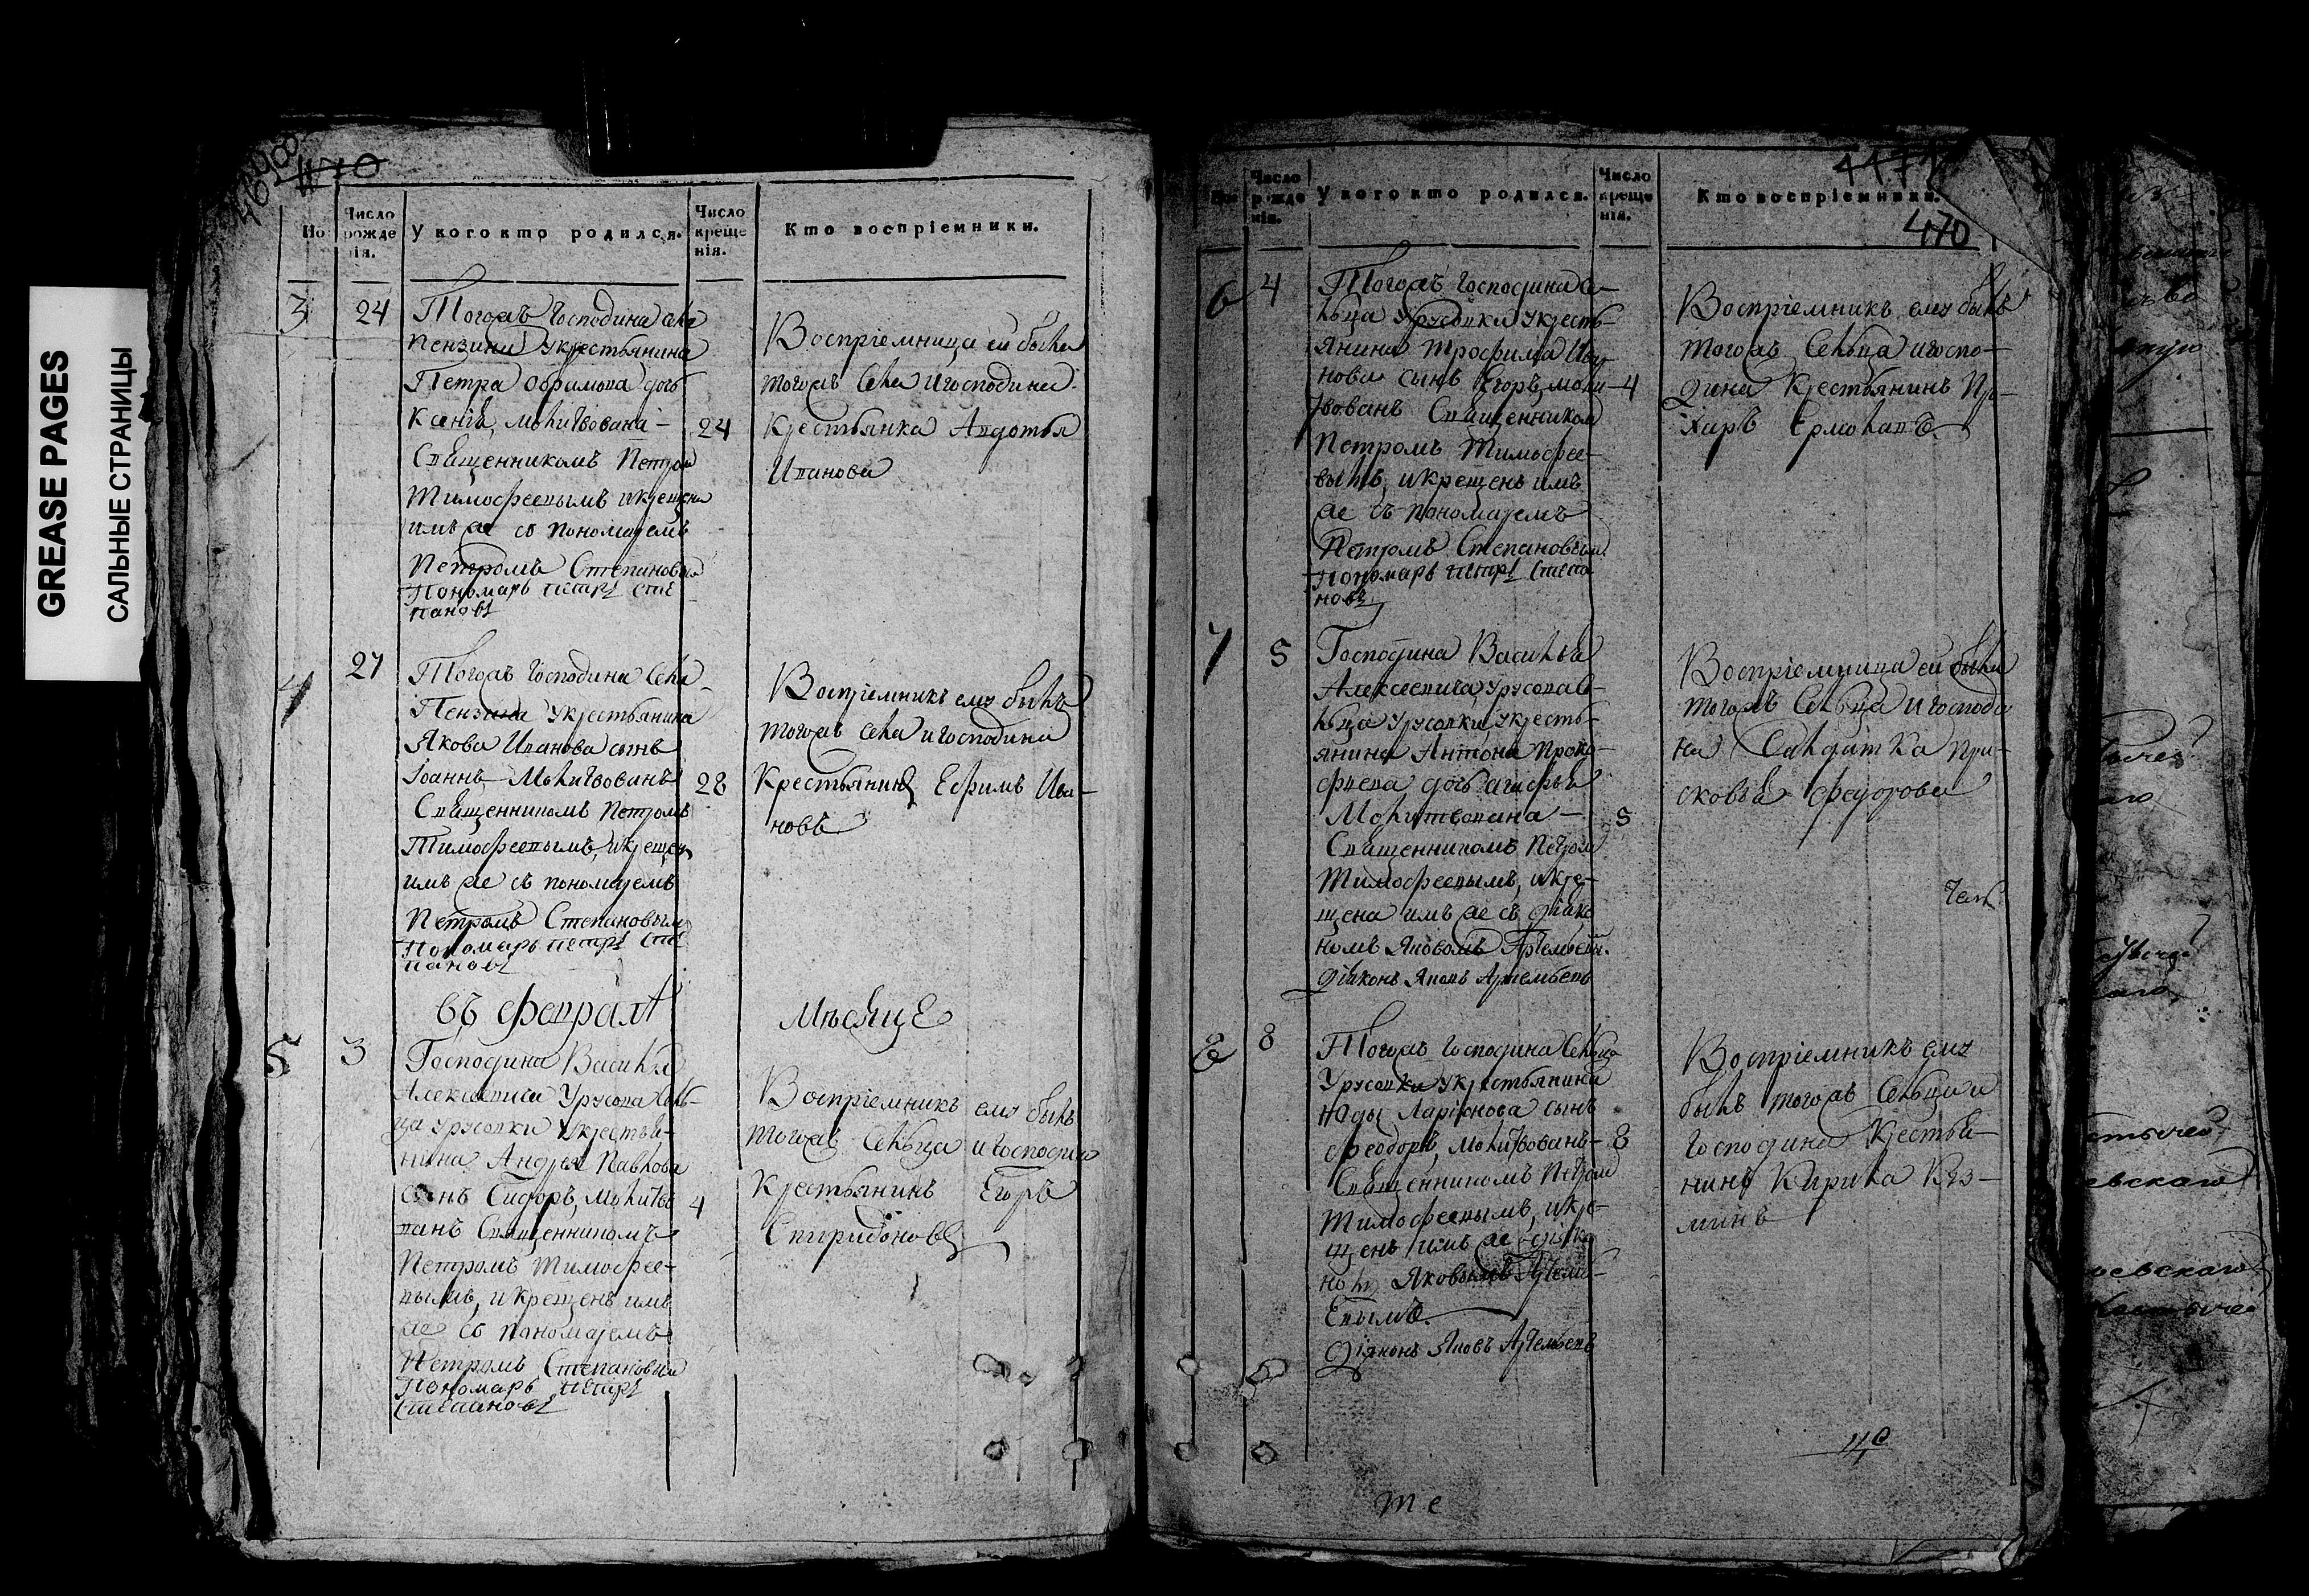 GREASE PAGES
САЛЬНЫЕ СТРАНИЦЫ
470
Но
Число рожденія.
У кого кто родился.
Число крещенія.
Кто воспріемники.
3
24
Тогожъ Господина села
Пензина укрестьянина
Петра Офимова дочь
Ксенія, молитвована
Священникомъ Петром
Тимофеевымъ икрещена
имъ же со пономаремъ
Петромъ Степановым
Пономарь петръ сте
пановъ
24
Воспріемница ей была
тогожъ села игосподина
Крестьянка Авдотья
Иванова
4
27
Тогожъ Господина села
Пензина укрестьянина
Якова Иванова сынъ
Іоаннъ Молитвованъ
Священникомъ Петромъ
Тимофеевымъ, икрещен
имъ же съ пономаремъ
Петромъ Степановым
Пономарь петръ сте
пановъ
28
Воспріемникъ ему былъ
тогожъ села игосподина
Крестьянинъ Ефимъ Ива-
новъ
въ феврале
месяце
5
3
Господина Василья
Алексеевича Урусова сель-
ца урусовки укрестья-
нина Андрея Павлова
сынъ Сидоръ, молитво
ванъ Священникомъ
Петромъ Тимофее-
вымъ, и крещенъ имъ
же со пономаремъ
Петромъ Степановым
Пономарь петръ
степановъ
4
Воспріемникъ ему былъ
тогожъ сельца и господина
Крестьянинъ Егоръ
Спиридоновъ
4471
470
Но
Число рожденія.
У кого кто родился.
Число крещенія.
Кто воспріемники.
6
4
Тогожъ господина се-
льца Урусовки укресть-
янина Трофима Ива-
нова сынъ Егоръ, моли-
твованъ Священником
Петромъ Тимофее-
вымъ, икрещенъ имъ
же съ пономаремъ
Петромъ Степановым
Пономарь петръ степа
новъ
4
Воспріемникъ ему былъ
тогожъ сельца игоспо-
дина крестьянинъ
Ермолаевъ
7
5
Господина Василья
Алексеевича урусова се-
льца урусовки, укресть-
янина Антона Проко-
фиева дочь агафья
Молитвована
Священникомъ Петром
Тимофеевымъ, икре-
щена имъ же съ діако
номъ Яковомъ Артемьевы.
діаконъ Яковъ Артемьевъ
5
Воспріемница ей была
тогожъ сельца и господи
на Салдатка Пра-
сковья Федорова
8
8
Тогожъ господина сельца
Урусовки укрестьянина
Юды Ларіонова сынъ
феодоръ, молитвованъ
Священникомъ Петром
Тимофеевымъ, икре-
щенъ имъ же діако
номъ Яковомъ Артемь-
евымъ.
діаконъ Яковъ Артемьевъ
8
Воспріемникъ ему
былъ тогожъ сельца и
Господина Крестья-
нинъ Кирила Куз-
минъ
те